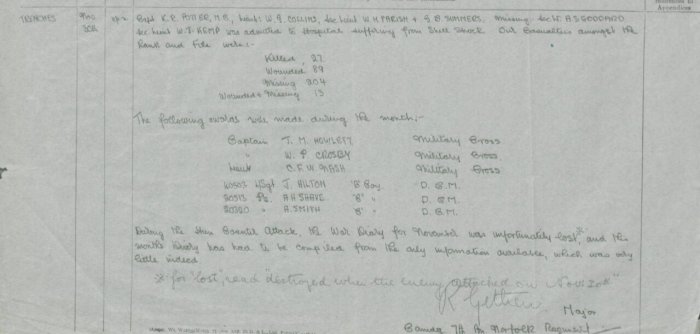 TRENCHES Nov 30th Capt. K.R. POTTER, M.C., Lieut. W.J. COLLINS, Sec Lieut W.H. PARISH + G B SUMMERS. Missing Sec Lt. A S GOODHARD
Sec Lieut W.T. KEMP was admitted to Hospital suffering from Shell Shock. Our Casualties amongst the
Rank and File were:-
Killed 27
Wounded 89
Missing 204
Wounded + Missing 13
The following awards were made during the month:-
Captain T. M. HOWLETT Military Cross
" W. F CROSBY Military Cross
Lieut C.F.W. Military Cross
J. HILTON "B" Coy. D.C.M.
A H SHAVE "B" " D.C.M.
A. SMITH "B" " D.C.M.
During the Hun Counter Attack, the War Diary for November was unfortunately lost*, and the
months history has had to be compiled from the only information available, which was only
little indeed
* for "lost", read "destroyed when the enemy attacked on Nov 30th"
Gethen
Major
Comdg 7th Bn Norfolk Regiment